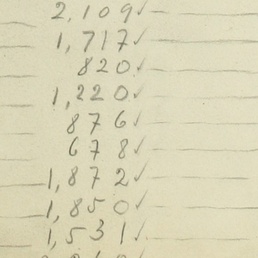 2,109✓
1,717✓
820✓
1,220✓
876✓
678✓
1,872✓
1,850✓
1,531✓